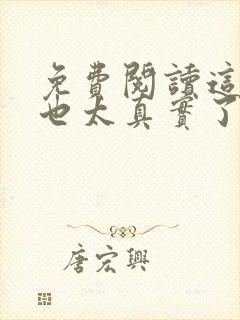 免費閱讀這
也太真實了
唐宏興